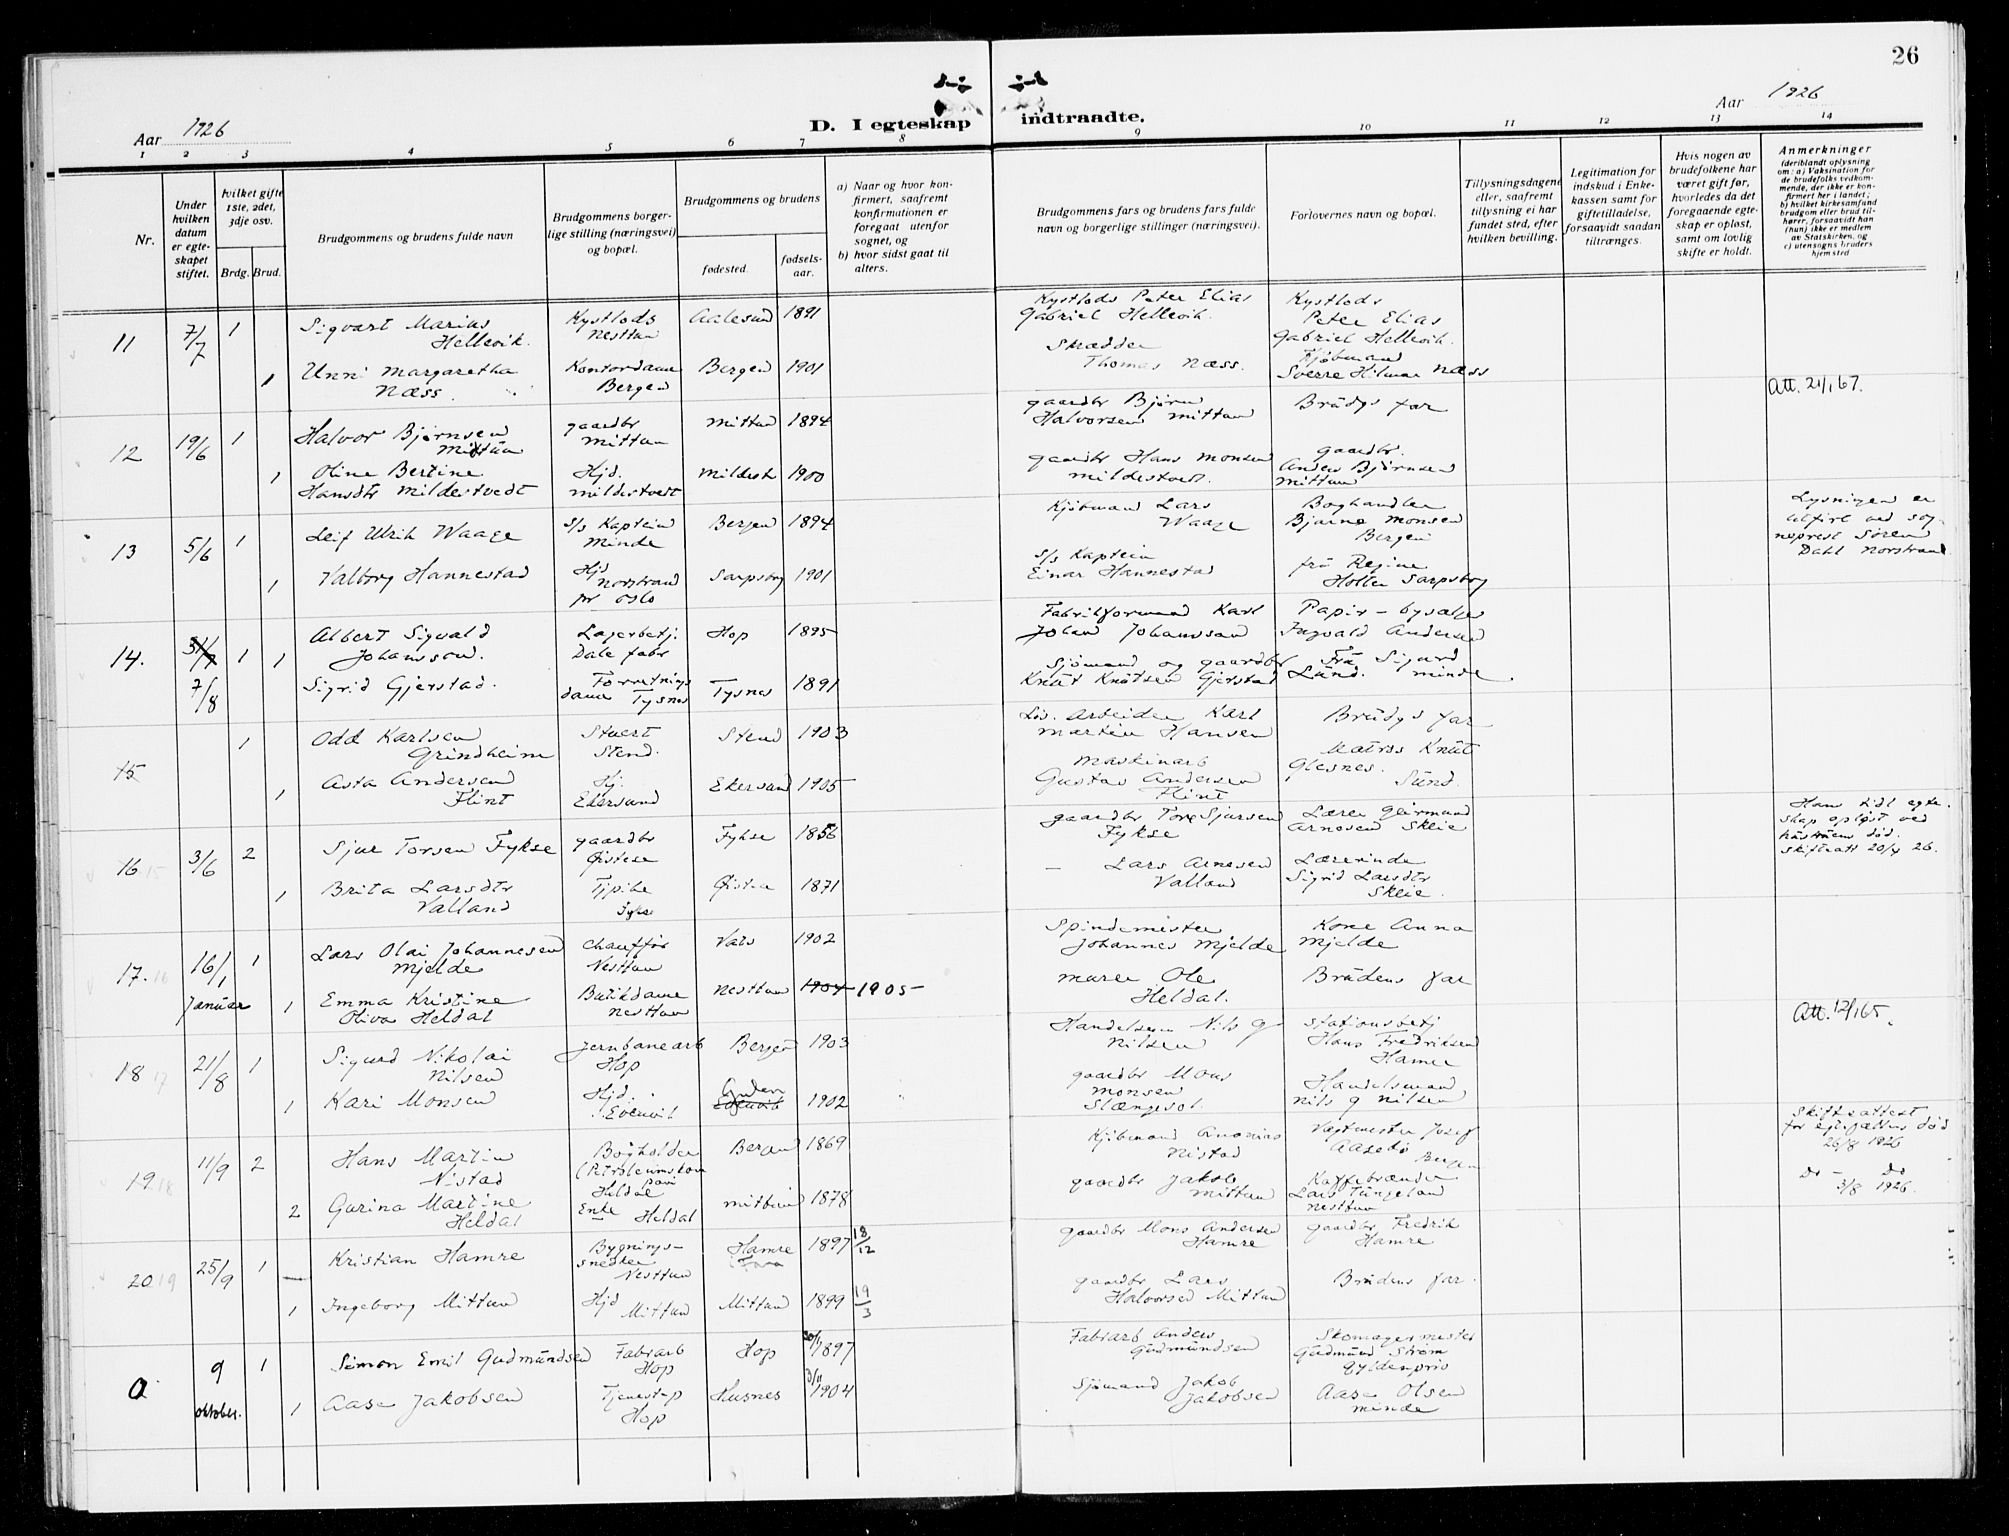 26
Aar 1926
D. I egteskap indtraadte.
Aar 1926
1 2 3 4 5 6 7 8 9 10 11 12 13 14
Nr.
Under hvilken datum er egteskapet stiftet.
hvilket gifte 1ste, 2det, 3dje osv.
Brdg. Brud.
Brudgommens og brudens fulde navn
Brudgommens borgerlige stilling (næringsvei) og bopæl.
Brudgommens og brudens
fødested.
fødselsaar.
a) Naar og hvor konfirmert, saafremt konfirmationen er foregaat utenfor sognet, og
b) hvor sidst gaat til alters.
Brudgommens fars og brudens fars fulde navn og borgerlige stillinger (næringsvei).
Forlovernes navn og bopæl.
Tillysningsdagene eller, saafremt tillysning ei har fundet sted, efter hvilken bevilling.
Legitimation for indskud i Enkekassen samt for giftetilladelse, forsaavidt saadan tiltrænges.
Hvis nogen av brudefolkene har været gift før, hvorledes da det foregaaende egteskap er opløst, samt om lovlig skifte er holdt.
Anmerkninger
(deriblandt oplysning om: a) Vaksination for de brudefolks vedkommende, der ikke er konfirmert her i landet; b) hvilket kirkesamfund brudgom eller brud tilhører, forsaavidt han (hun) ikke er medlem av Statskirken, og c) utensogns bruders hjemsted
11 7/7 1 Sigvart Marius Hellevik. Kystlods Nesttun Aalesund 1891 Kystlods Peter Elias Gabriel Hellevik. Kystlods Peter Elias Gabriel Hellevik.
1 Unni Margaretha Næss. Kontordame Bergen Bergen 1901 Skrædder Thomas Næss. Kjøbmand Sverre Hilmar Næss
Att. 21/1 67.
12 19/6 1 Halvor Bjørnsen Mittun gaardbr Mittun Mittun 1894 gaardbr Bjørn Halvorsen Mittun Brudgs far
1 Oline Bertine Hansdtr Mildestvedt Hjd. Mildestvedt Mildestv 1900 gaardbr Hans Monsen Mildestvedt. gaardbr. Anders Bjørnsen Mittun
13 5/6 1 Leif Ulrik Waage S/s Kaptein Minde Bergen 1894 Kjøbmand Lars Waage Boghandler Bjarne Monsen Bergen
Lysningen er utført ved sogneprest Søren Dahl Norstrand
1 Valborg Hannestad Hjd Norstrand pr Oslo Sarpsborg 1901 S/s Kaptein Einar Hannestad frü Regine Holter Sarpsborg
14. 31/7 7/8 1 1 Albert Sigvald Johanssen. Lagerbetj. Dale fabr Hop 1895 Fabrikformand Karl Johan Johanssan Papir- Ingvald Andersen
Sigrid Gjerstad. Forretningsdame Tysnes Tysnes 1891 Sjømand og gaardbr Knüt Knütsen Gjerstad Frü Sigurd Lünd. Minde.
15 1 Odd Karlsen Grindheim Stuert Stend. Stend 1903 Løs. Arbeider Karl Martin Hansen Brüdgs far
1 Asta Andersen Flint Hj. Ekersund Ekersund 1905 Maskinarb Gustav Andersen Flint Matros Knüt Glesnes. Sünd.
16 15 3/6 2 Sjur Torsen Fykse gaardbr Øistese Fykse 1856 gaardbr Tore Sjursen Fykse Lærer Geirmund Arnesen Skeie
Hans tidl egteskap opløst ved hüstrüens død. Skifteatt 20/4 26.
1 Brita Larsdtr Valland Tjpike Fykse Øistese 1871 – Lars Arnesen Valland Lærerinde Sigrid Larsdtr Skeie.
17. 16 16/1 Januar 1 Lars Olai Johannesen Mjelde Chauffør Nesttun Vats 1902 Spindemester Johannes Mjelde Kone Anna Mjelde
1 Emma Kristine Oliva Heldal Butikdame Nesttun Nesttun 1904 1905 Murer Ole Heldal. Brüdens far
Att. 12/1 65.
18 17 21/8 1 Sigurd Nikolai Nilsen Jernbanearb Hop Bergen 1903 Handelsmann Nils G Nilsen Stationsbetj Hans Fredriksen Hamre
1 Kari Monsen Hjd. Evenvik 1902 gaardbr Mons Monsen Handelsmand Nils G Nilsen
19 18 11/9 2 Hans Martin Nistad Bogholder (Petroleumskompani Heldal Bergen 1869 Kjøbmand Ananias Nistad Vægtmester Josef Aasebø Bergen
Skifteattest for egtefællens død 26/8 1926
2 Gurina Martine Heldal Enke Heldal Mittun 1878 gaardbr Jakob Mittun Kaffebrænder Lars Tüngeland Nesttun
Do – Do 3/8 1926.
20 19 25/9 1 Kristian Hamre Bygningssnedker Nesttun Hamre 1897 18/12 gaardbr Mons Andersen Hamre gaardbr Fredrik Hamre
1 Ingeborg Mittun Hjd Mittun Mittun 1899 19/3 gaardbr Lars Halvorsen Mittun Brüdens far.
0 9 oktober. 1 Simon Emil Gudmündsen Fabrarb Hop Hop 30/1 1897 Fabrarb Anders Güdmündsen Skomagermester Güdmünd Strøm Gyldenpris
1 Aase Jakobsen Tjenestep Hop Husnes 3/11 1904 Sjømand Jakob Jakobsen Aase Olsen Minde